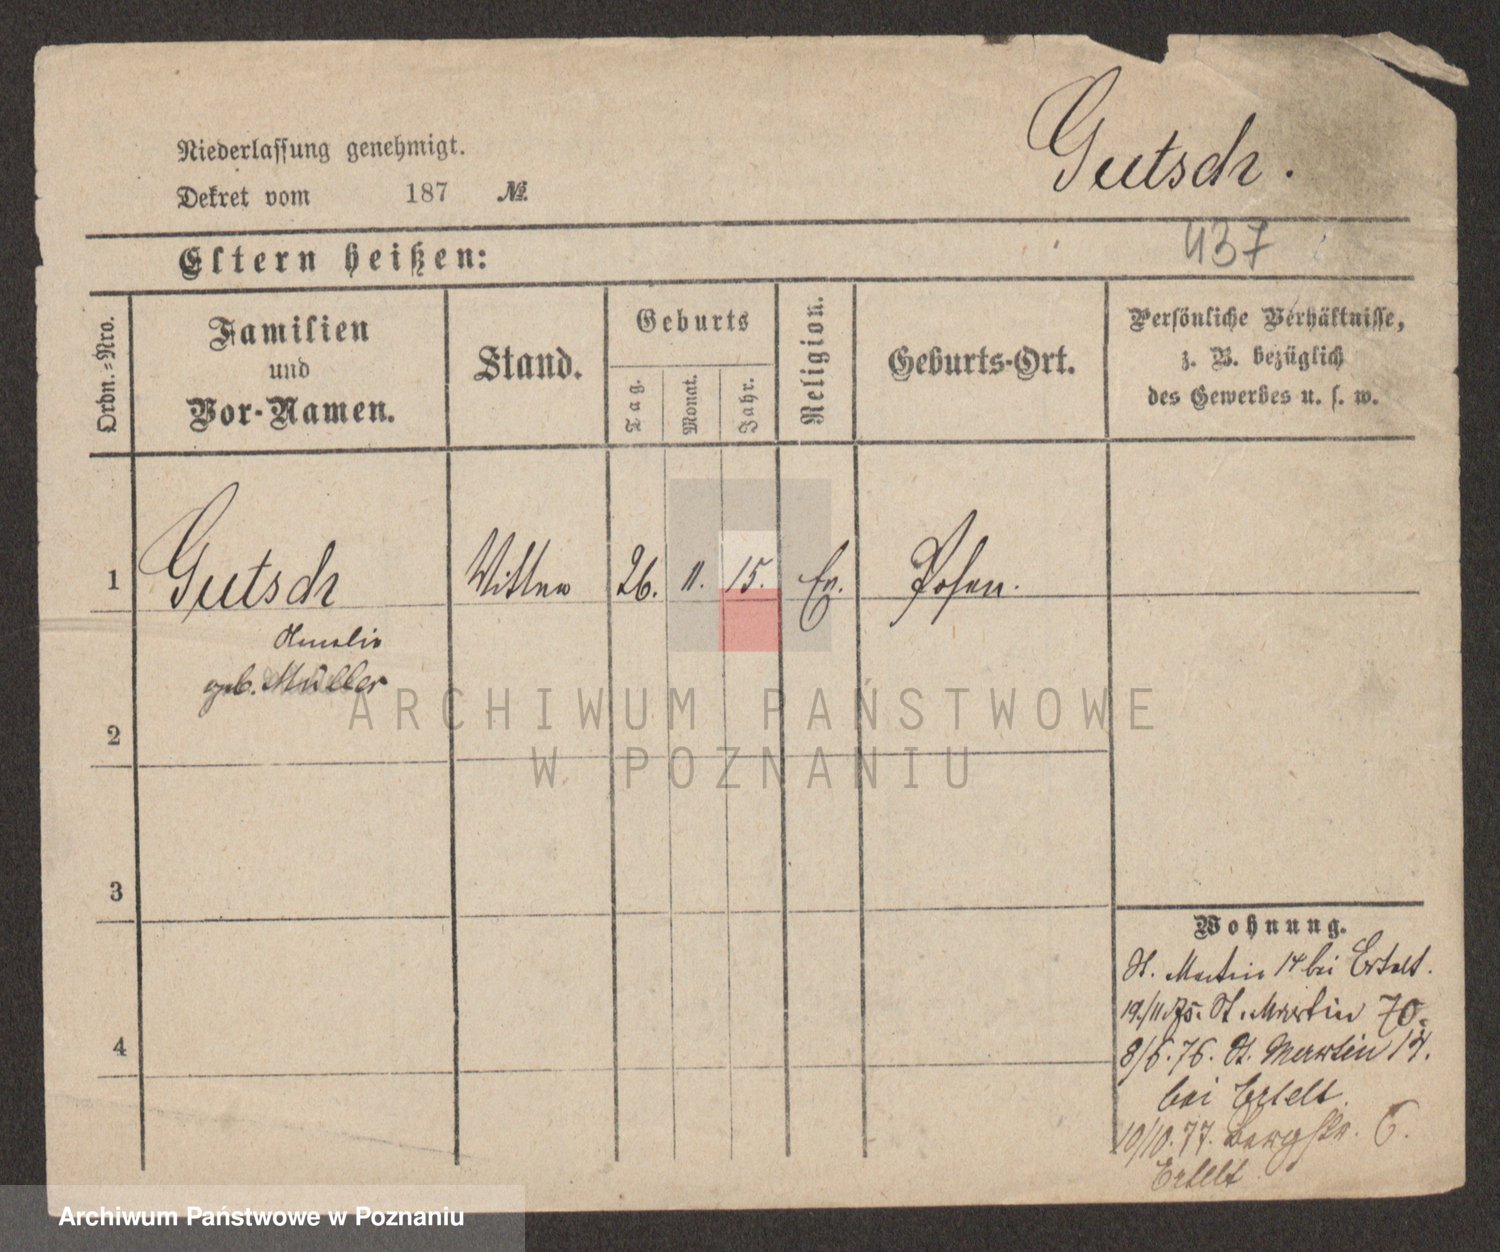 Niederlassung genehmigt.
Dekret vom 187 №
Gutsch.
437
Eltern heißen:
Ordn.-Nro.
Familien
und
Vor-Namen.
Stand.
Geburts
Tag.
Monat.
Jahr.
Religion.
Geburts-Ort.
Persönliche Verhältnisse,
z. B. bezüglich
des Gewerbes u. s. w.
1 Gutsch Wittwe 26. 11. 15. Ev. Posen.
Amalie
geb. Müller
2
3
4
Wohnung.
St. Martin 14 bei Ertelt.
19./11.75. St. Martin 70.
8/6.76. St. Martin 14.
bei Ertelt.
10/10.77. Bergstr. 6.
Ertelt
ARCHIWUM PAŃSTWOWE
W POZNANIU
Archiwum Państwowe w Poznaniu